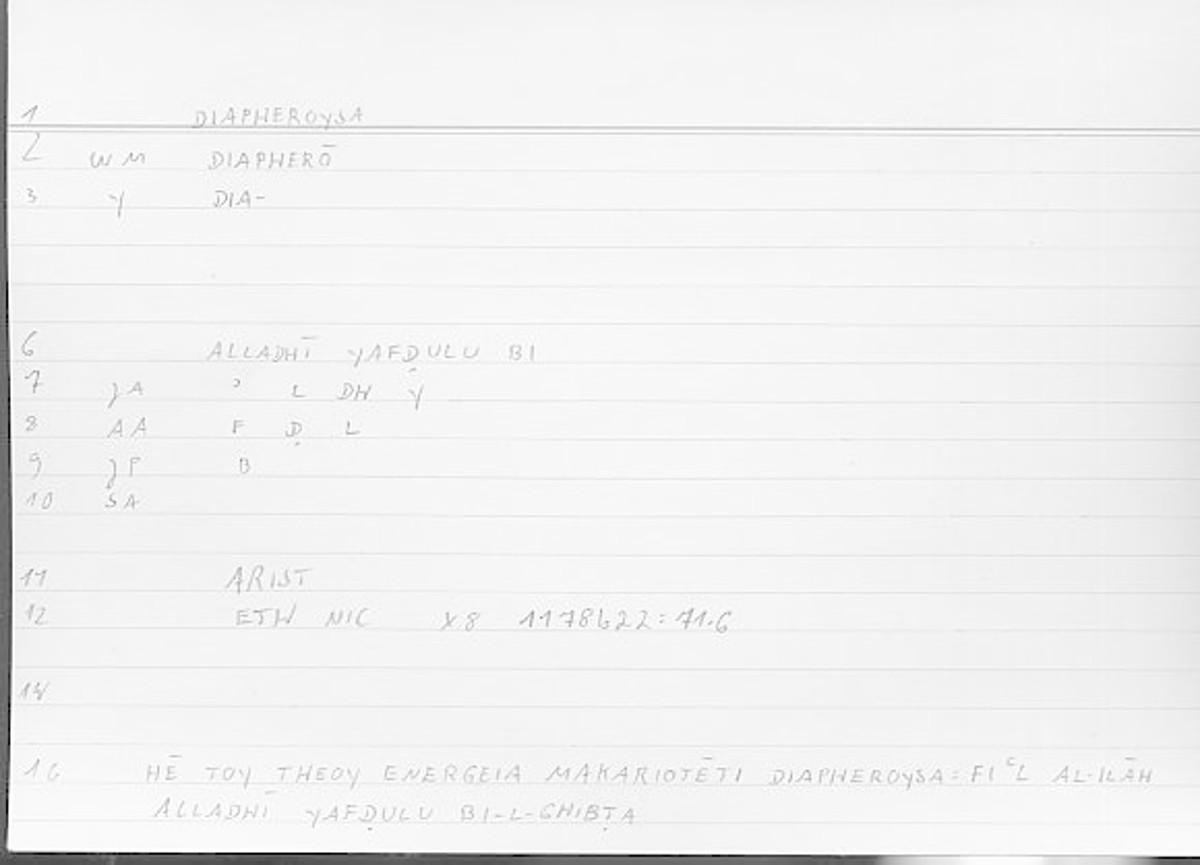 1 DIAPHEROYSA
2 WM DIAPHERŌ
3 Y DIA-
6 ALLADHĪ YAFḌULU BI
7 JA ʾ L DH Y
8 AA F Ḍ L
9 JP B
10 SA
11 ARIST
12 ETH NIC X8 1178b22:71.6
14
16 HĒ TOY THEOY ENERGEIA MAKARIOTĒTI DIAPHEROYSA: FIʿL AL-ILĀH
ALLADHĪ YAFḌULU BI-L-GHIBṬA